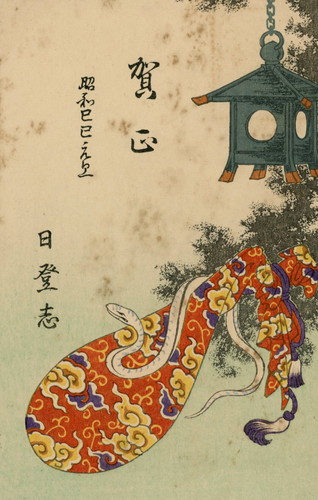 賀正
昭和己巳元旦
日登志